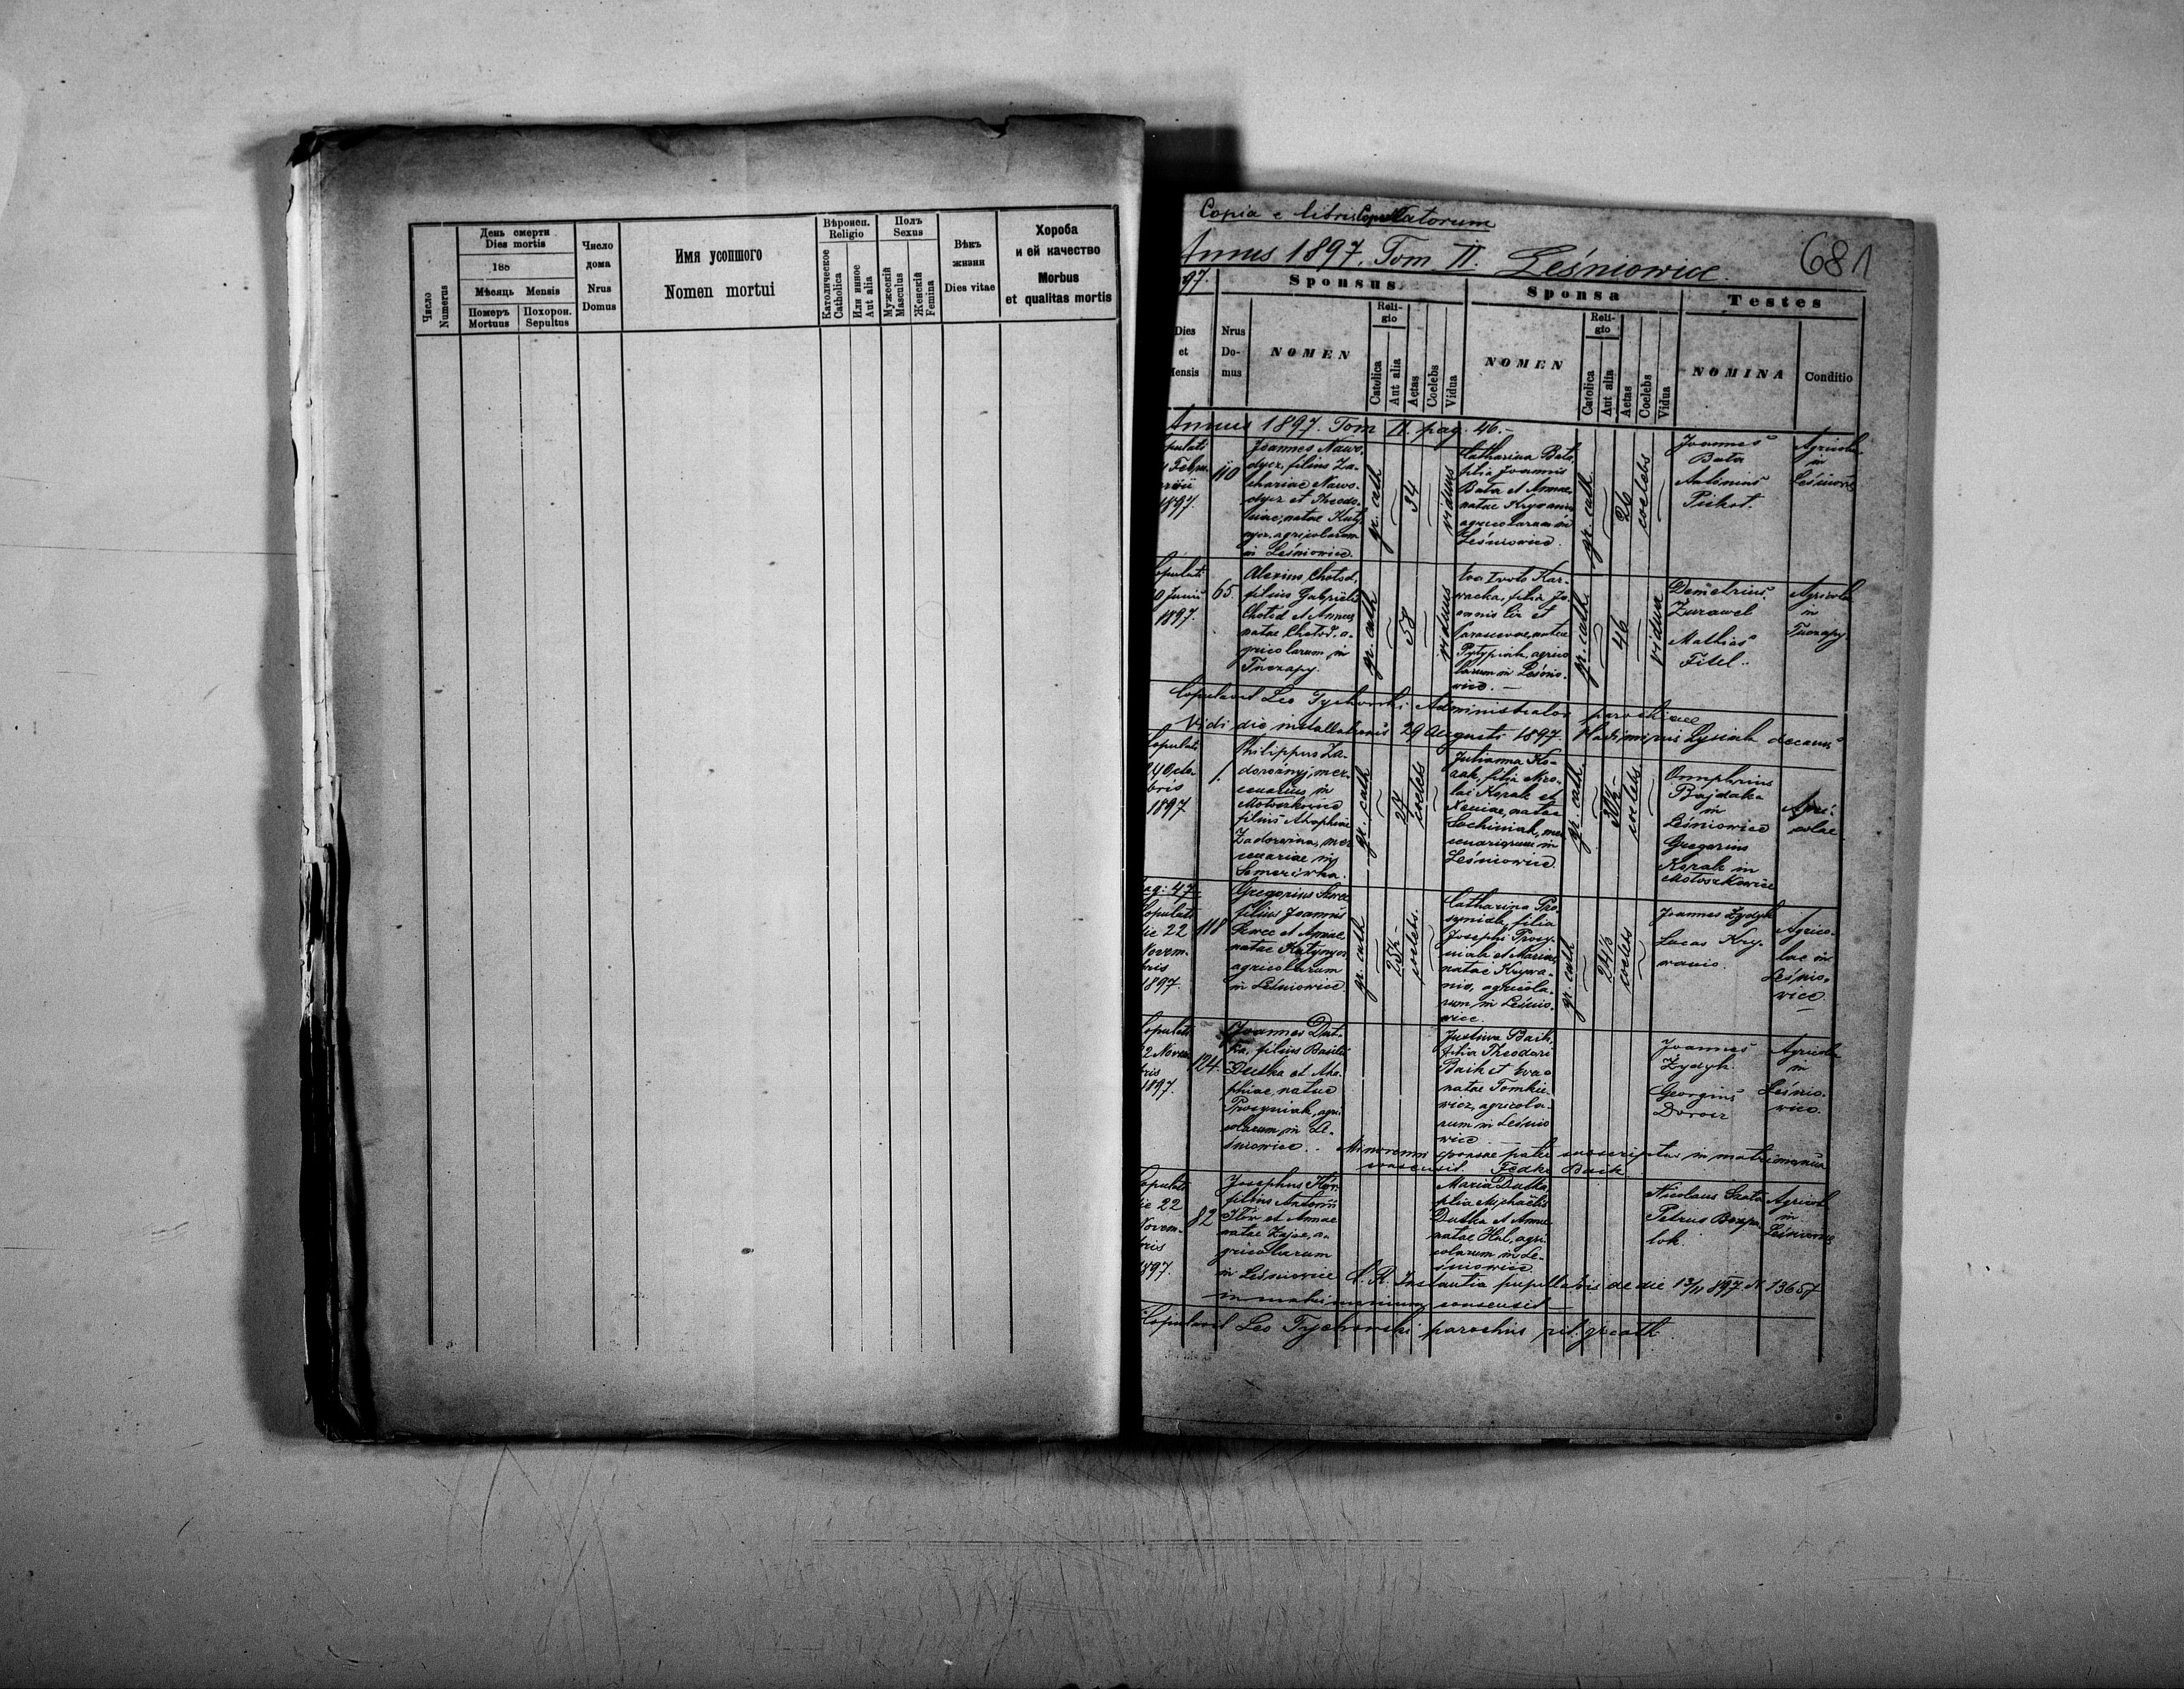 Число
Numerus
День смерти
Dies mortis
188
Мѣсяць Mensis
Померъ
Mortuus
Похорон.
Sepultus
Число
дома
Nrus
Domus
Имя усопшого
Nomen mortui
Вѣроисп.
Religio
Католическое
Catholica
Или инное
Aut alia
Полъ
Sexus
Мужескій
Masculus
Женскій
Femina
Вѣкъ
жизни
Dies vitae
Хороба
и ей качество
Morbus
et qualitas mortis
Copia e libris Copulatorum
Annus 1897. Tom. II. Leśniowice.
681
97.
Sponsus
Sponsa
Testes
Dies
et
Mensis
Nrus
Do-
mus
NOMEN
Reli-
gio
Catolica
Aut alia
Aetas
Coelebs
Vidua
NOMEN
Reli-
gio
Catolica
Aut alia
Aetas
Coelebs
Vidua
NOMINA
Conditio
Annus 1897. Tom II. pag. 46.-
pulati
Febru-
arii
1897.
110
Joannes Nawo-
dycz, filius Za-
chariae Nawo-
dycz et Theodo-
siae, natae
agricolarum
in Leśniowice.
gr. cath
34
viduus
Catharina Bata,
filia Joannis
Bata et Annae,
natae Krywanis
agricolarum in
Leśniowice.
gr. cath.
26
coelebs
Joannes
Bata
Antonius
Piekot.
Agricolae
in
Leśniowice
Copulati
Junii
1897.
65.
Alexius Chotod,
filius Gabrielis
Chotod et Annae
natae Chotod, a-
gricolarum in
Tuczapy.
gr. cath
58
viduus
Eva Kar-
wacka, filia Jo-
annis et
Parascevae, natae
agrico-
larum in Leśnio-
wice. —
gr. cath.
46
vidua
Demetrius
Żurawel
Mathias
Fitel.
Agricolae
in
Tuczapy
Copulavit Leo Tychowski Administrator parochiae
Vidi die installationis 29 Augusti 1897. Wladimirus Lysiak decanus
Copulati
24 Octo-
bris
1897
1.
Philippus Za-
dorożnyj, mer-
cenarius in
Motoszkowice
filius Ahaphiae
mer-
cenariae in
gr. cath
27
coelebs
Julianna Ko-
zak, filia Nico-
lai Kozak et
Xeniae, natae
mer-
cenariorum in
Leśniowice
gr. cath.
coelebs.
Onuphrius
Bajdaka
in
Leśniowice
Gregorius
Kozak in
Motoszkowice
Agri-
colae
Pag: 47.
Copulati
die 22
Novem-
bris
1897.
118
Gregorius
filius Joannis
et Annae
natae
agricolarum
in Leśniowice
gr. cath
coelebs.
Catharina Pro-
cyniak, filia
Josephi Procy-
niak et Mariae,
natae Krywa-
nis, agricola-
rum in Leśnio-
wice.
gr. cath
coelebs
Joannes Żydyk
Lucas Kry-
wanio.
Agrico-
lae in
Leśnio-
wice
Copulati
22 Novem-
bris
1897.
124.
Joannes Dut-
ka, filius Basilii
Dutka et Aha-
phiae, natae
Procyniak, agri-
colarum in Le-
śniowice.
Justina Baik,
filia Theodori
Baik et Evae
natae Tomkie-
wicz, agricola-
rum in Leśnio
wice
Joannes
Żydyk
Georgius
Agricolae
in
Leśnio-
wice.
Minorenni sponsae pater subscriptus in matrimonium
consensit. Fedko Baik
Copulati
die 22
Novem-
bris
1897.
82
Josephus
filius Antonii
et Annae
natae Zając, a-
gricolarum
in Leśniowice
Maria Dutka
filia Michaelis
Dutka et Annae
natae Hul, agri-
colarum in Le-
śniowice.
Nicolaus
Petrus
Agricolae
in
Leśniowice
C. R. Instantia pupillaris de die 13/11 897 N. 13657
in matrimonium consensit —
Copulavit Leo Tychowski parochus rit. gr. cath.